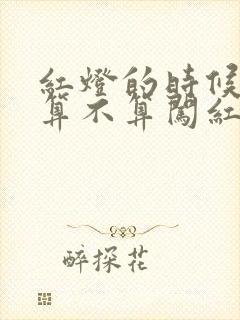 紅燈的時候
算不算闖紅
醉探花